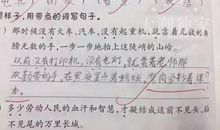 样子,用带点的词写句子。
那时候没有火车、汽车,没有起重机,就靠着无数的肩
膀无数的手,一步一步地抬上这陡峭的山岭。
以前没有打印机,没有电灯,就靠着老师那
双勤劳的手,在
多少劳动人民的血汗和智慧,才凝结成这前不见头、后
不见尾的万里长城。